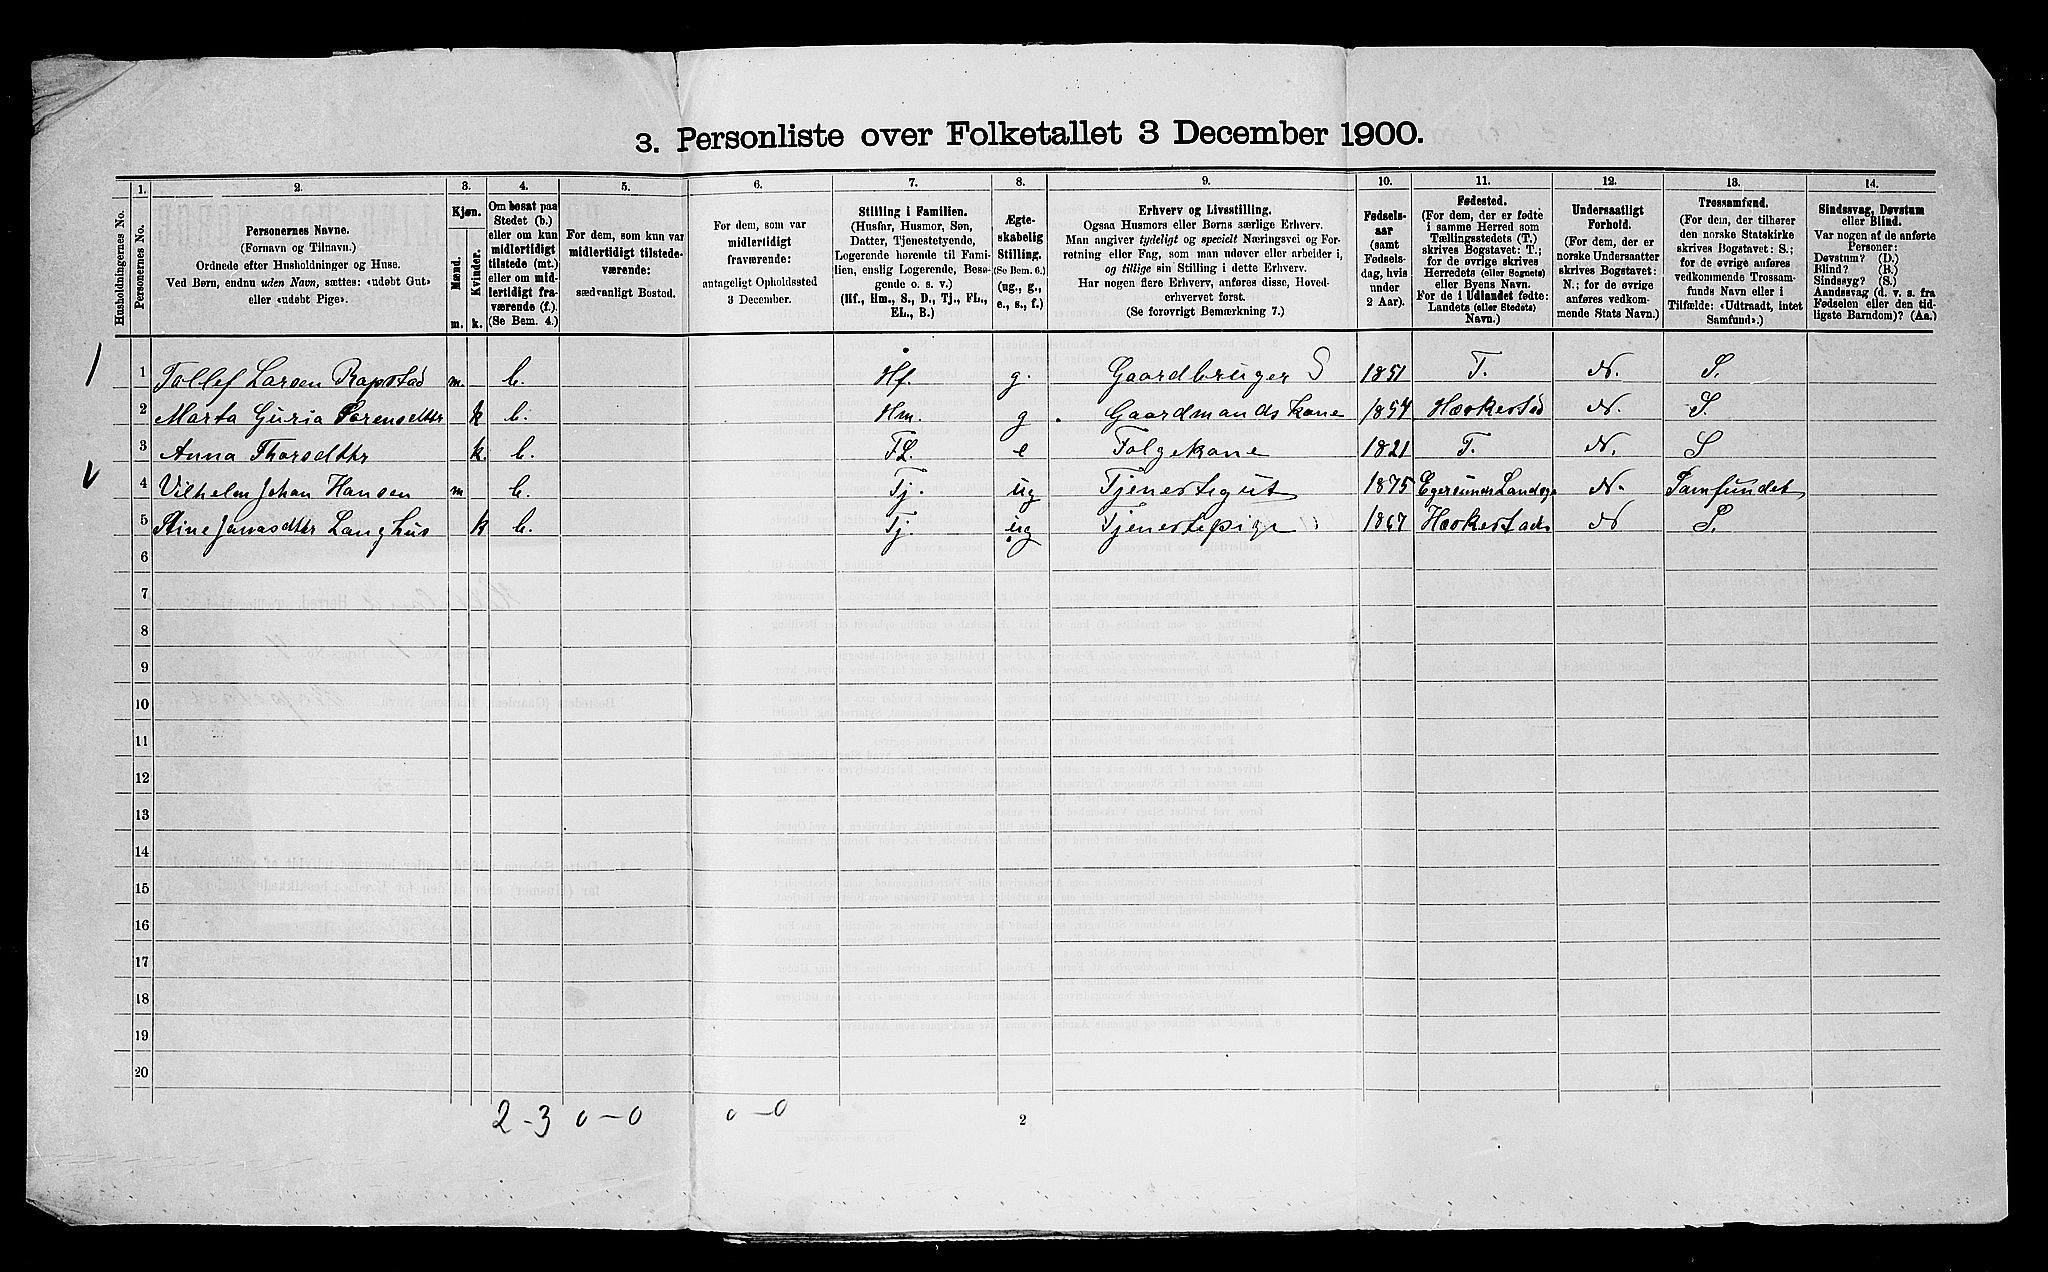 3. Personliste over Folketallet 3 December 1900.
Husholdningernes No.
1.
Personernes No.
2.
Personernes Navne.
(Fornavn og Tilnavn.)
Ordnede efter Husholdninger og Huse.
Ved Børn, endnu uden Navn, sættes: «udøbt Gut»
eller «udøbt Pige».
3.
Kjøn.
Mænd.
Kvinder.
m.
k.
4.
Om bosat paa
Stedet (b.)
eller om kun
midlertidigt
tilstede (mt.)
eller om mid-
lertidigt fra-
værende (f.).
(Se Bem. 4.)
5.
For dem, som kun var
midlertidigt tilstede-
værende:
sædvanligt Bosted.
6.
For dem, som var
midlertidigt
fraværende:
antageligt Opholdssted
3 December.
7.
Stilling i Familien.
(Husfar, Husmor, Søn,
Datter, Tjenestetyende,
Logerende hørende til Fami-
lien, enslig Logerende, Besø-
gende o. s. v.)
(Hf., Hm., S., D., Tj., FL.,
EL., B.)
8.
Ægte-
skabelig
Stilling.
(Se Bem. 6.)
(ug., g.,
e., s., f.)
9.
Erhverv og Livsstilling.
Ogsaa Husmors eller Børns særlige Erhverv.
Man angiver tydeligt og specielt Næringsvei og For-
retning eller Fag, som man udøver eller arbeider i,
og tillige sin Stilling i dette Erhverv.
Har nogen flere Erhverv, anføres disse, Hoved-
erhvervet først.
(Se forøvrigt Bemærkning 7.)
10.
Fødsels-
aar
(samt
Fødsels-
dag, hvis
under
2 Aar).
11.
Fødested.
(For dem, der er fødte
i samme Herred som
Tællingsstedets (T.)
skrives Bogstavet: T.;
for de øvrige skrives
Herredets (eller Sognets)
eller Byens Navn.
For de i Udlandet fødte:
Landets (eller Stedets)
Navn.)
12.
Undersaatligt
Forhold.
(For dem, der er
norske Undersaatter
skrives Bogstavet:
N.; for de øvrige
anføres vedkom-
mende Stats Navn.)
13.
Trossamfund.
(For dem, der tilhører
den norske Statskirke
skrives Bogstavet: S.;
for de øvrige anføres
vedkommende Trossam-
funds Navn eller i
Tilfælde: «Udtraadt, intet
Samfund».)
14.
Sindssvag, Døvstum
eller Blind.
Var nogen af de anførte
Personer:
Døvstum? (D.)
Blind? (B.)
Sindssyg? (S.)
Aandssvag (d. v. s. fra
Fødselen eller den tid-
ligste Barndom)? (Aa.)
1 Tollef Larsen Rapstad m. b. Hf. g. Gaardbruger S 1851 T. N. S.
2 Marta Guria Sørensdttr k b. Hm. g Gaardmands Kone 1854 Heskestad N. S
3 Anna Thorsdttr k. b. FL. e Folgekone 1821 T. N. S
4 Vilhelm Johan Hansen m b. Tj. ug Tjenestegut 1875 Egersunds Landsg N. Samfundet
5 Stine Jonasdttr Langhus k b. Tj. ug Tjenestepige 1867 Heskestads N S.
6
7
8
9
10
11
12
13
14
15
16
17
18
19
20
2-3 0-0 0-0
2